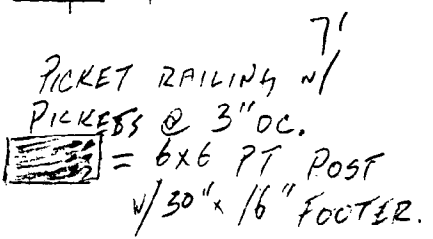 7'
PICKET RAILING w/
PICKETS @ 3" OC.
= 6x6 PT POST
w/ 30" x 16" FOOTER.